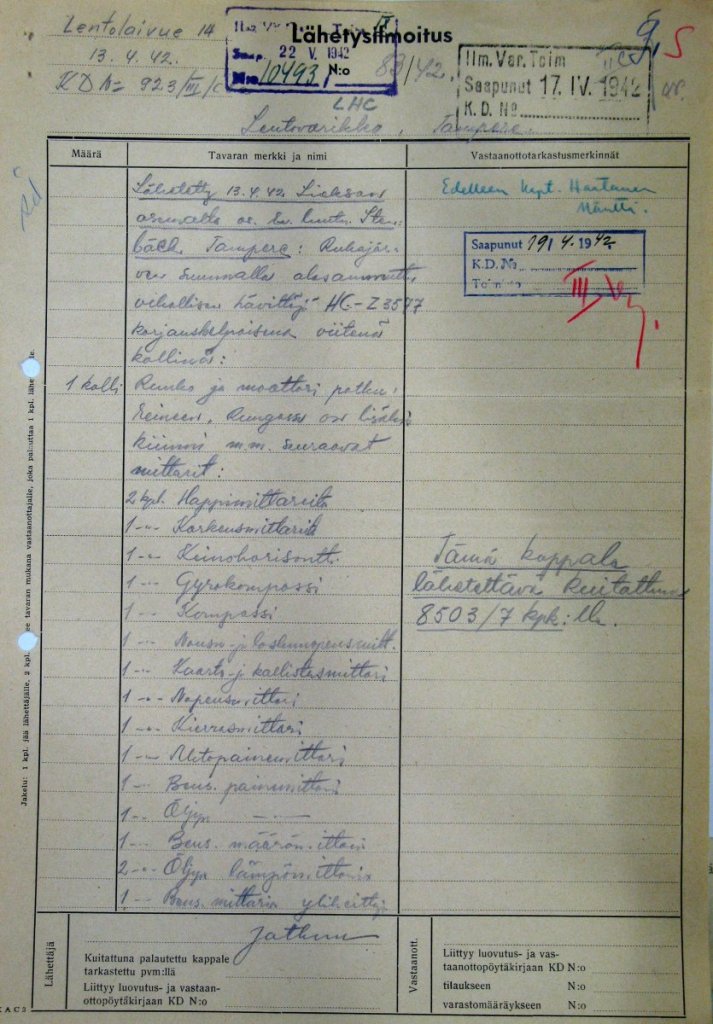 Lentolaivue 14
13.4.42.
KD N:o 923/III/
Lähetysilmoitus
Saap. 22 V. 1942
N:o 10493 N:o 83/42.
Ilm. Var. Toim
Saapunut 17. IV. 1942
K. D. No
LHC
Lentovarikko, Tampere
Määrä
Tavaran merkki ja nimi
Vastaanottotarkastusmerkinnät
Lähetetty 13.4.42. Lieksan
asemalta os. Ev. luutn. Sten-
bäck. Tampere: Rukajär-
ven suunnalla alasammuttu
vihollisen hävittäjä HC-Z3577
korjauskelpoisena viitenä
kollina:
1 kolli Runko ja moottori potku-
reineen. Rungossa on lisäksi
kiinni m.m. seuraavat
mittarit:
2 kpl. Happimittareita
1 -"- Korkeusmittareita
1 -"- Keinohorisontti
1 -"- Gyrokompassi
1 -"- Kompassi
1 -"- Nousu- ja laskunopeusmitt.
1 -"- Kaarto- ja kallistusmittari
1 -"- Nopeusmittari
1 -"- Kierrosmittari
1 -"- Ahtopainemittari
1 -"- Bens. painemittari
1 -"- Öljyn -"-
1 -"- Bens. määrämittari
2 -"- Öljyn lämpömittaria
1 -"- Bens. mittarin
Jatkuu
Edelleen kapt. Hartanen
Mänttä.
Saapunut 19/4.1942
K.D. No
Toim
III
Tämä kappale
lähetettävä kuitattuna
8503/7 kpk:lle.
Lähettäjä
Kuitattuna palautettu kappale
tarkastettu pvm:llä
Liittyy luovutus- ja vastaan-
ottopöytäkirjaan KD N:o
Vastaanott.
Liittyy luovutus- ja vas-
taanottopöytäkirjaan KD N:o
tilaukseen N:o
varastomääräykseen N:o
Jakelu: 1 kpl. jää lähettäjälle, 2 kpl. tavaran mukana vastaanottajalle, joka palauttaa 1 kpl.